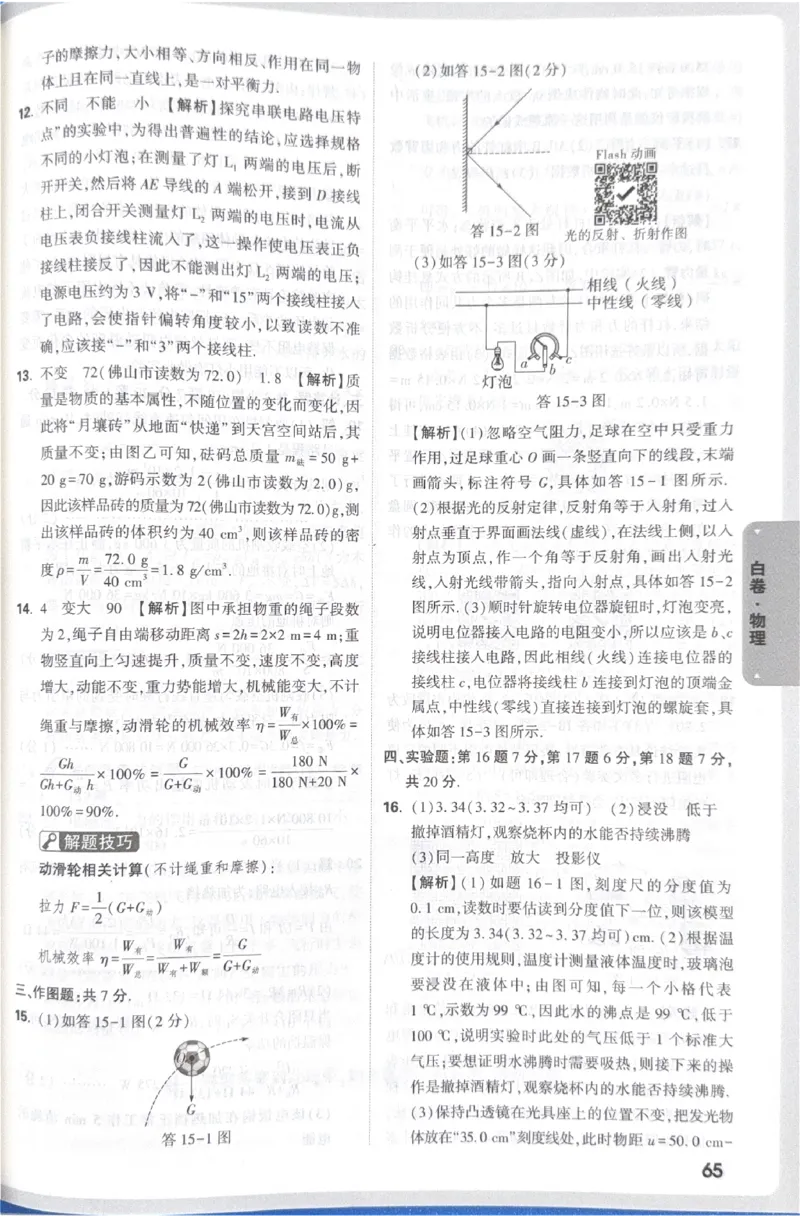 子的摩擦力,大小相等、方向相反、作用在同一物
体上且在同一直线上,是一对平衡力.
12. 不同 不能 小 【解析】探究串联电路电压特
点”的实验中,为得出普遍性的结论,应选择规格
不同的小灯泡;在测量了灯 L₁ 两端的电压后,断
开开关,然后将 AE 导线的 A 端松开,接到 D 接线
柱上,闭合开关测量灯 L₂ 两端的电压时,电流从
电压表负接线柱流入了,这一操作使电压表正负
接线柱接反了,因此不能测出灯 L₂ 两端的电压;
电源电压约为 3 V,将“-”和“15”两个接线柱接入
了电路,会使指针偏转角度较小,以致读数不准
确,应该接“-”和“3”两个接线柱.
13. 不变 72(佛山市读数为 72.0) 1.8 【解析】质
量是物质的基本属性,不随位置的变化而变化,因
此将“月壤砖”从地面“快递”到天宫空间站后,其
质量不变;由图乙可知,砝码总质量 m砝=50 g+
20 g=70 g,游码示数为 2(佛山市读数为 2.0)g,
因此该样品砖的质量为 72(佛山市读数为 72.0)g,测
出该样品砖的体积约为 40 cm³,则该样品砖的密
度 ρ=m/V=72.0 g/40 cm³=1.8 g/cm³.
14. 4 变大 90 【解析】图中承担物重的绳子段数
为 2,绳子自由端移动距离 s=2h=2×2 m=4 m;重
物竖直向上匀速提升,质量不变,速度不变;高度
增大,动能不变,重力势能增大,机械能变大,不计
绳重与摩擦,动滑轮的机械效率 η=W有/W总×100%=
Gh/(Gh+G动 h)×100%=G/(G+G动)×100%=180 N/(180 N+20 N)×
100%=90%.
解题技巧
动滑轮相关计算(不计绳重和摩擦):
拉力 F=1/2(G+G动)
机械效率 η=W有/W总=W有/(W有+W额)=G/(G+G动)
三、作图题:共 7 分.
15. (1)如答 15-1 图(2 分)
O
G
答 15-1 图
(2)如答 15-2 图(2 分)
Flash 动画
答 15-2 图
光的反射、折射作图
(3)如答 15-3 图(3 分)
相线(火线)
中性线(零线)
a
b
c
灯泡
答 15-3 图
【解析】(1)忽略空气阻力,足球在空中只受重力
作用,过足球重心 O 画一条竖直向下的线段,末端
画箭头,标注符号 G,具体如答 15-1 图所示.
(2)根据光的反射定律,反射角等于入射角,过入
射点垂直于界面画法线(虚线),在法线上侧,以入
射点为顶点,作一个角等于反射角,画出入射光
线,入射光线带箭头,指向入射点,具体如答 15-2
图所示.(3)顺时针旋转电位器旋钮时,灯泡变亮,
说明电位器接入电路的电阻变小,所以应该是 b、c
接线柱接入电路,因此相线(火线)连接电位器的
接线柱 c,电位器将接线柱 b 连接到灯泡的顶端金
属点,中性线(零线)直接连接到灯泡的螺旋套,具
体如答 15-3 图所示.
四、实验题:第 16 题 7 分,第 17 题 6 分,第 18 题 7 分,
共 20 分.
16. (1)3.34(3.32~3.37 均可) (2)浸没 低于
撤掉酒精灯,观察烧杯内的水能否持续沸腾
(3)同一高度 放大 投影仪
【解析】(1)如题 16-1 图,刻度尺的分度值为
0.1 cm,读数时要估读到分度值下一位,则该模型
的长度为 3.34(3.32~3.37 均可)cm.(2)根据温
度计的使用规则,温度计测量液体温度时,玻璃泡
要浸没在液体中;由图可知,每一个小格代表
1 ℃,示数为 99 ℃,因此水的沸点是 99 ℃,低于
100 ℃,说明实验时此处的气压低于 1 个标准大
气压;要想证明水沸腾时需要吸热,则接下来的操
作是撤掉酒精灯,观察烧杯内的水能否持续沸腾.
(3)保持凸透镜在光具座上的位置不变,把发光物
体放在“35.0 cm”刻度线处,此时物距 u=50.0 cm-
白卷·物理
65